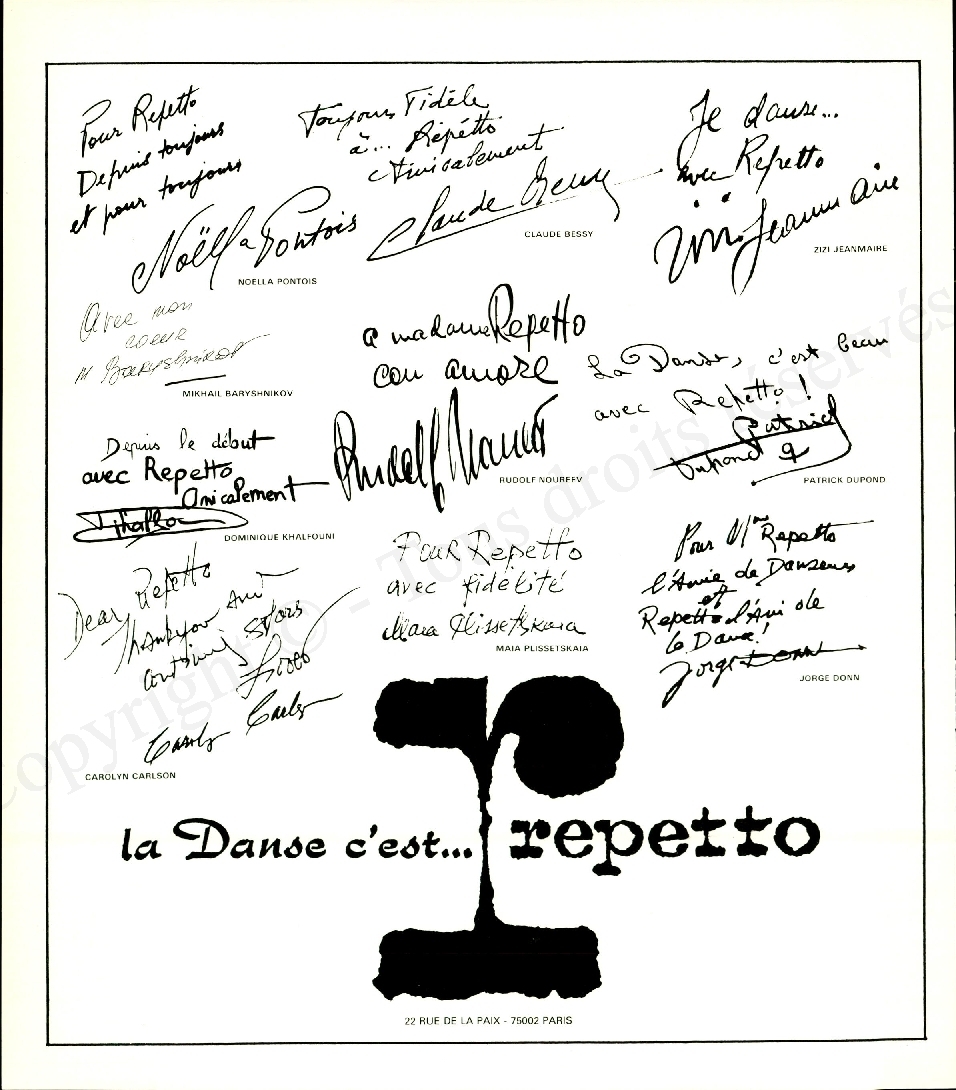 Pour Repetto
Depuis toujours
et pour toujours
Noëlla Pontois
NOELLA PONTOIS
Toujours Fidèle
à... Répétto
Amicalement
Claude Bessy
CLAUDE BESSY
Je danse...
avec Repetto
Zizi Jeanmaire
ZIZI JEANMAIRE
Avec mon
coeur
M Baryshnikov
MIKHAIL BARYSHNIKOV
a madame Repetto
con amore
Rudolf Noureev
RUDOLF NOUREEV
La Danse, c'est beau
avec Repetto!
Patrick
Dupond
PATRICK DUPOND
Depuis le début
avec Repetto
Amicalement
DOMINIQUE KHALFOUNI
Dear Repetto
Thankyou and
Carolyn Carlson
CAROLYN CARLSON
Pour Repetto
avec fidélité
Maia Plissetskaia
MAIA PLISSETSKAIA
Pour Mme Repetto
l'Amie de Danseurs
et
Repetto l'Ami de
la Danse!
Jorge Donn
JORGE DONN
la Danse c'est... repetto
22 RUE DE LA PAIX - 75002 PARIS
Copyright © - Tous droits réservés